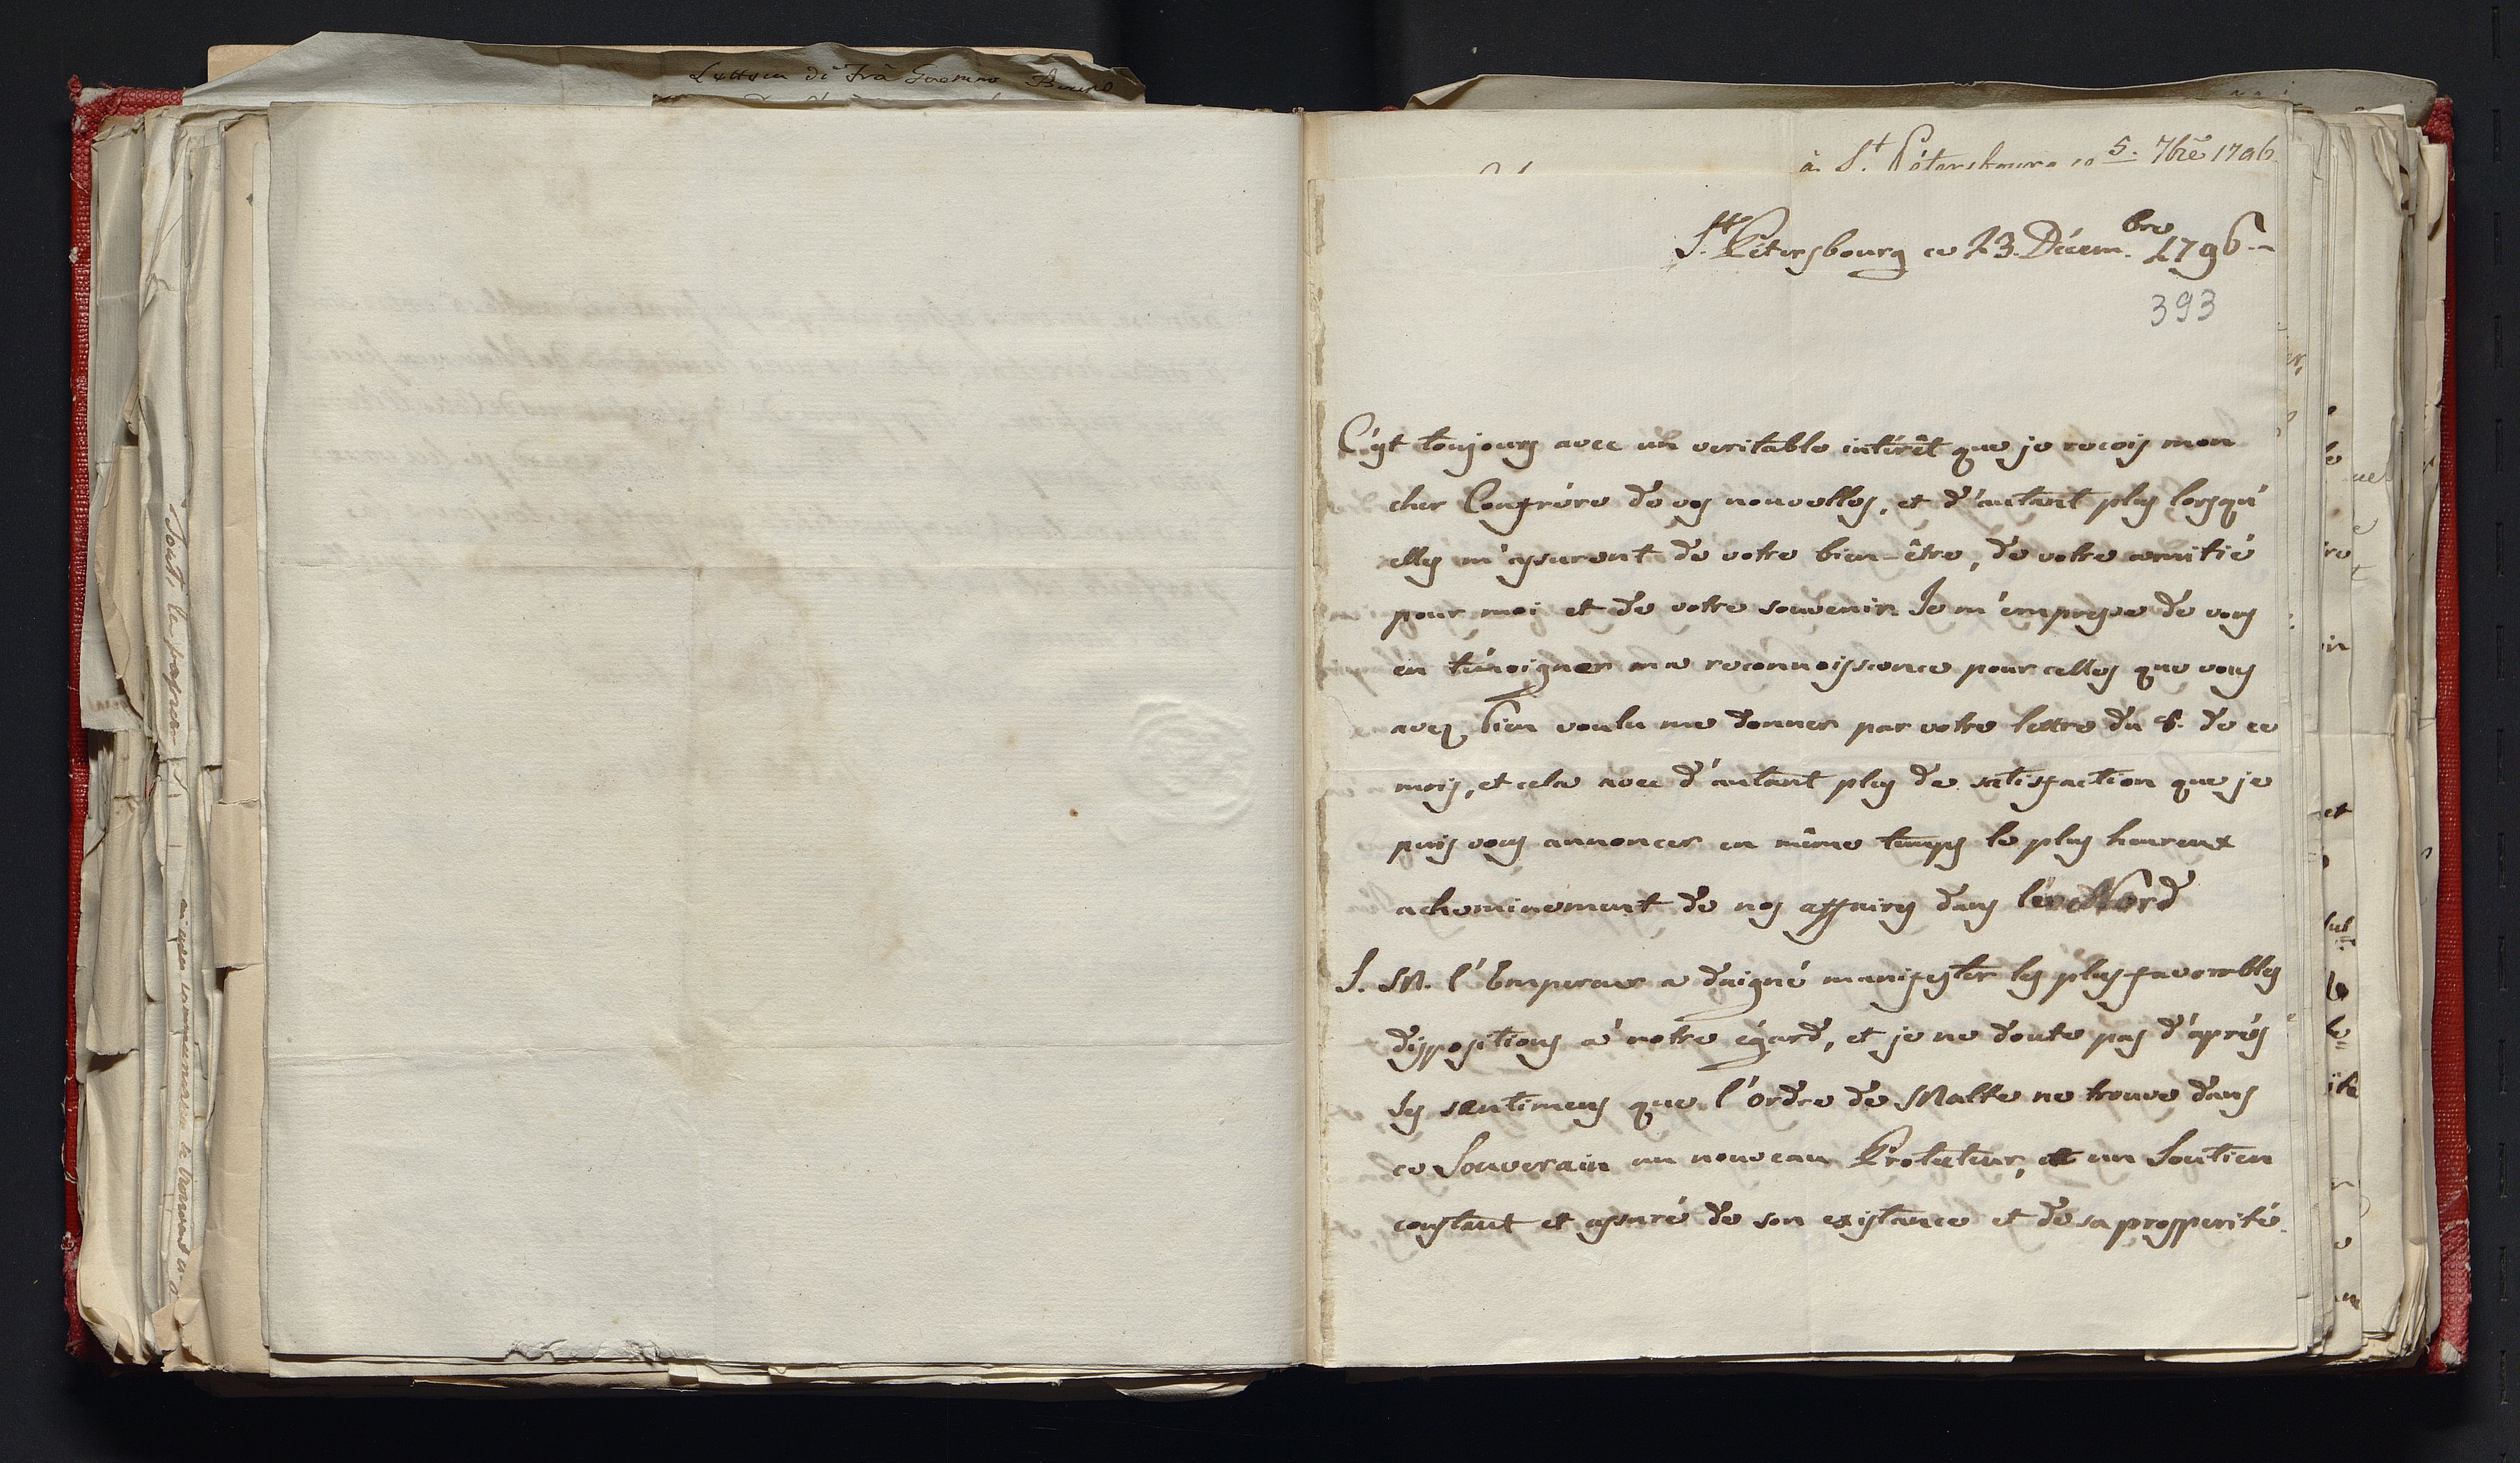 Lettera di Frà Gaetano Bruno
à St. Pétersbourg ce 5. 7bre 1796
St. Pétersbourg ce 23. Décem.bre 1796
393
C'est toujours avec un veritable intérêt que je recois mon
cher Confrére de vos nouvelles, et d'autant plus lorsqu'
elles m'assurent de votre bien-être, de votre amitié
pour moi et de votre souvenir. Je m'empresse de vous
en témoigner ma reconnoissance pour celles que vous
avez bien voulu me donner par votre lettre du 5. de ce
mois, et cela avec d'autant plus de satisfaction que je
puis vous annoncer en même temps le plus heureux
acheminement de nos affaires dans le Nord
S. M. l'Empereur a daigné manifester les plus favorables
dispositions a' notre égard, et je ne doute pas d'aprés
ses sentimens que l'Ordre de Malte ne trouve dans
ce Souverain un nouveau Protecteur, et un Soutien
constant et assuré de son existance et de sa prosperité.